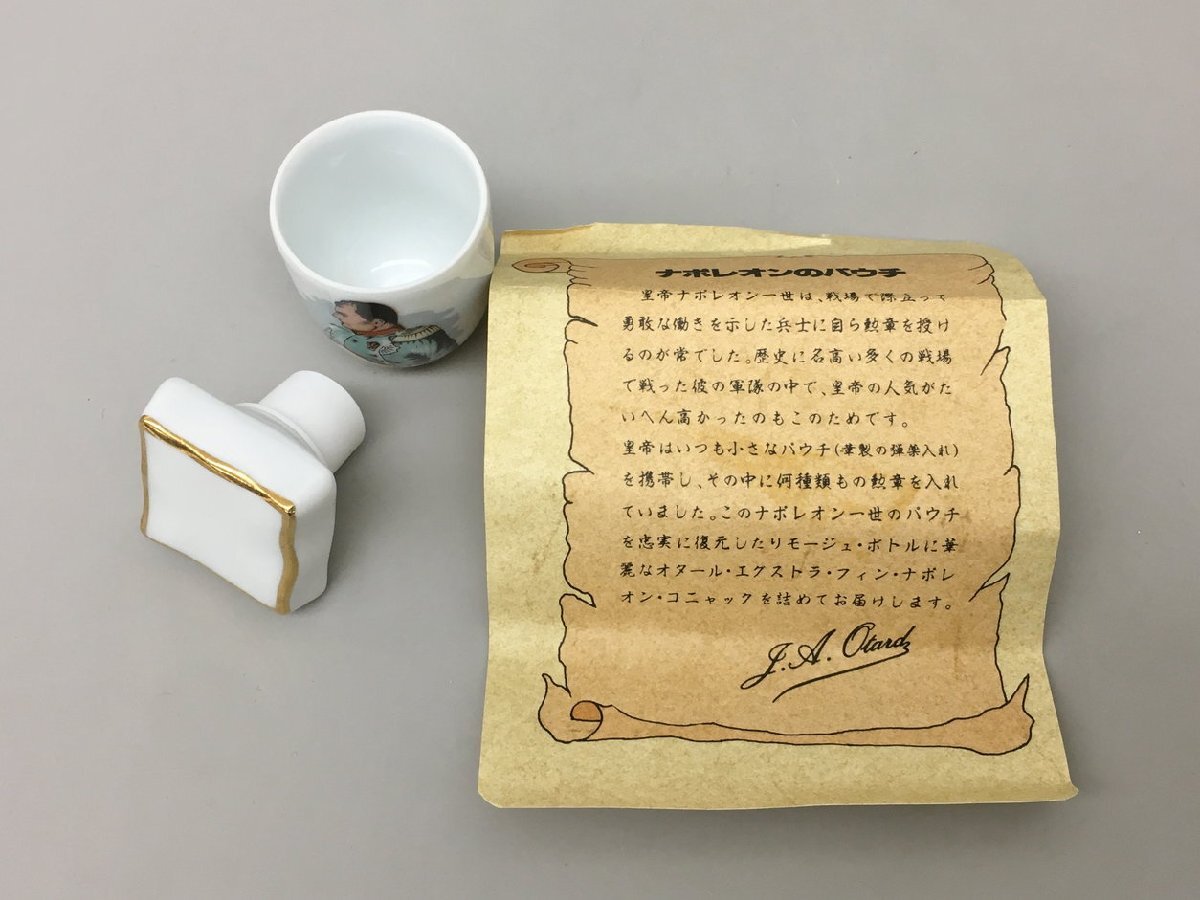 ナポレオンのパウチ
皇帝ナポレオン一世は、戦場で際立って
勇敢な働きを示した兵士に自ら勲章を授け
るのが常でした。歴史に名高い多くの戦場
で戦った彼の軍隊の中で、皇帝の人気がた
いへん高かったのもこのためです。
皇帝はいつも小さなパウチ(革製の弾薬入れ)
を携帯し、その中に何種類もの勲章を入れ
ていました。このナポレオン一世のパウチ
を忠実に復元したリモージュ・ボトルに華
麗なオタール・エクストラ・フィン・ナポレ
オン・コニャックを詰めてお届けします。
J. A. Otard